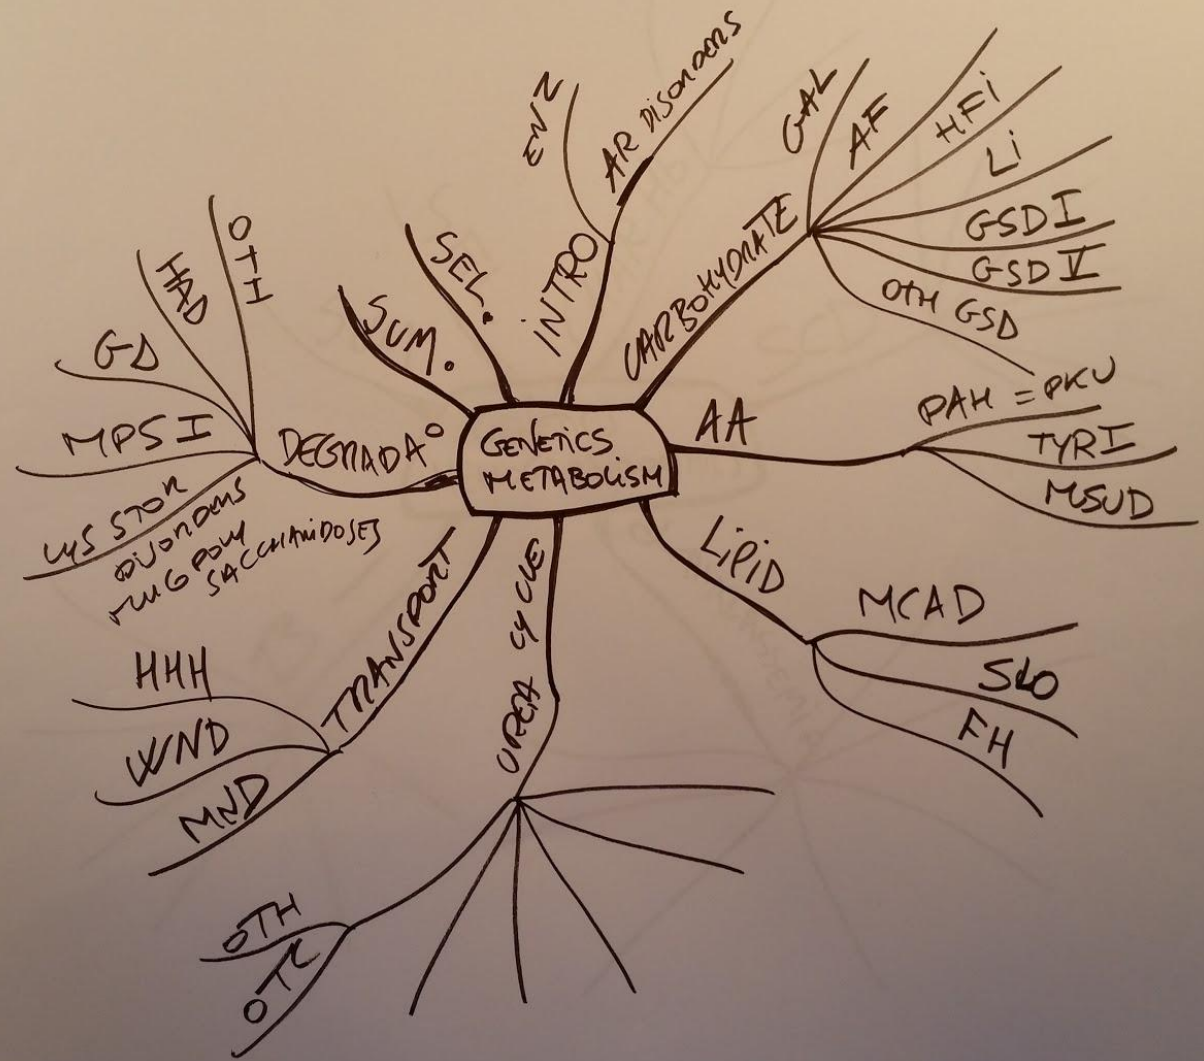 GENETICS
METABOLISM
INTRO
ENZ
AR DISORDERS
CARBOHYDRATE
GAL
AF
HFi
Li
GSD I
GSD V
OTH GSD
AA
PAH = PKU
TYR I
MSUD
LiPiD
MCAD
SLO
FH
UREA CYCLE
OTH
OTC
TRANSPORT
HHH
WND
MND
DEGRADA°
OTH
GD
MPS I
LYS STOR
DISORDERS
POLY
SACCHARIDOSES
SUM.
SEL.